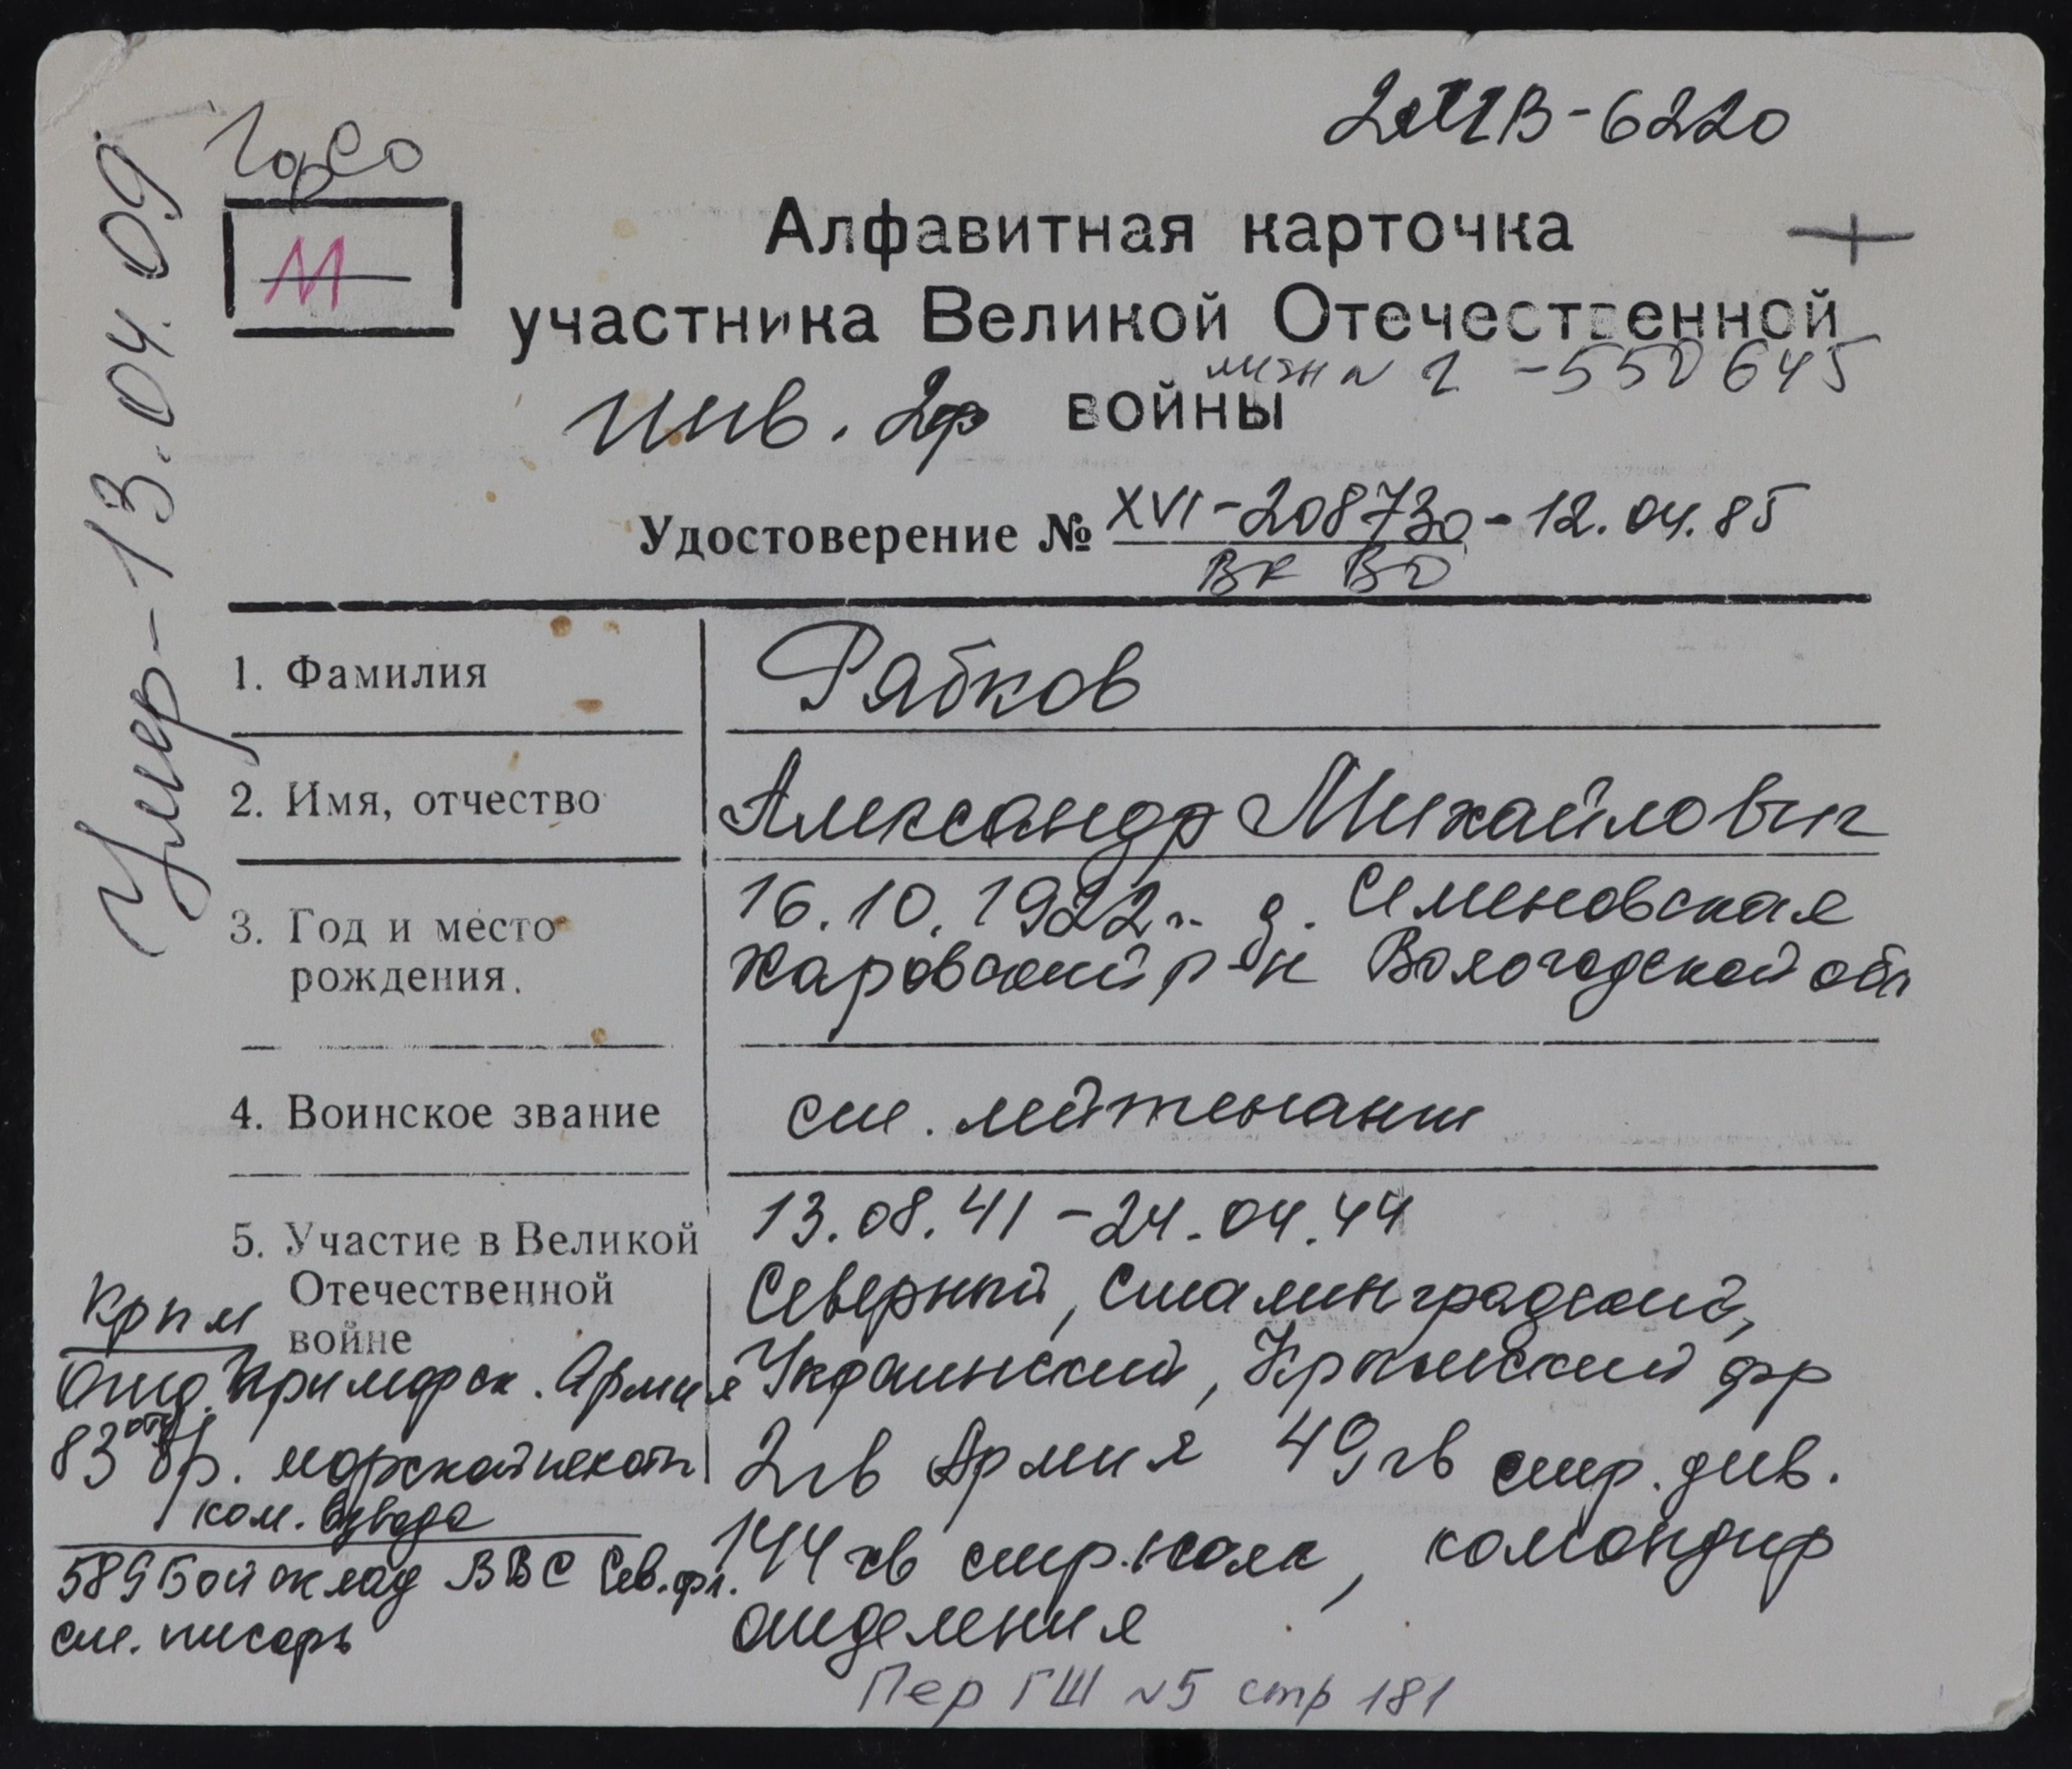 Умер-13.04.09
ГорСО
М
-6220
Алфавитная карточка
участника Великой Отечественной
-550645
инв. 2гр войны
Удостоверение № XVI-208730-12.04.85
ВК ВО
1. Фамилия Рябков
2. Имя, отчество Александр Михайлович
3. Год и место рождения.
16.10.1922г. д. Семеновская
Харовский р-н Вологодской обл
4. Воинское звание ст. лейтенант
5. Участие в Великой
Отечественной
войне
13.08.41-24.04.44
Северный, Сталинградский,
Украинский, Крымский фр
2гв Армия 49гв стр. див.
144 гв стр. полк, командир
отделения
Крым
Отд. Приморск. Армия
83 отд бр. морской пехоты
ком. взвода
589 Бой склад ВВС Сев. фл.
ст. писарь
Пер ГШ №5 стр 181